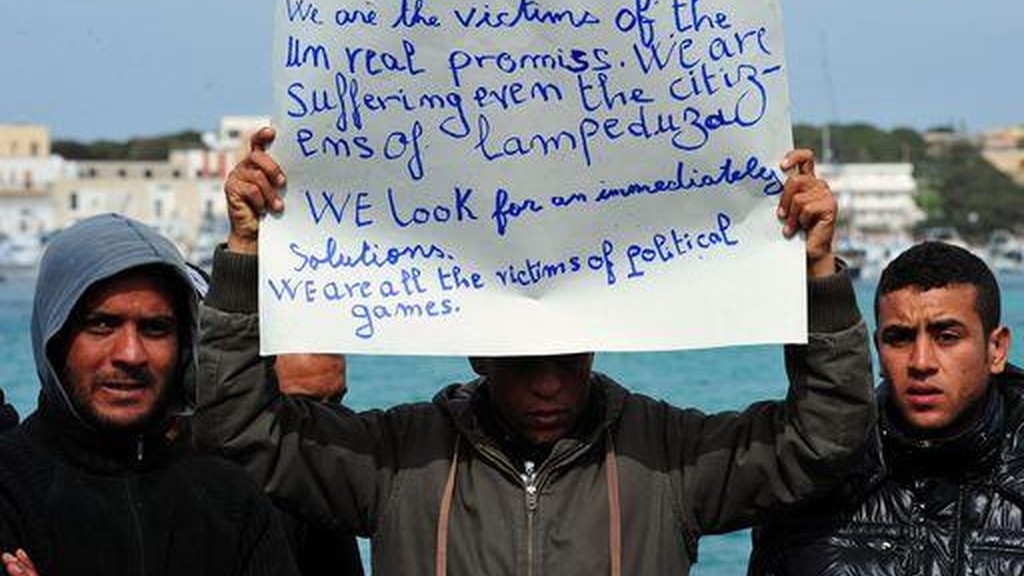 We are the victims of the
un real promiss. We are
suffering even the citiz-
ens of lampeduza
WE look for an immediately
Solutions.
WE are all the victims of political
games.